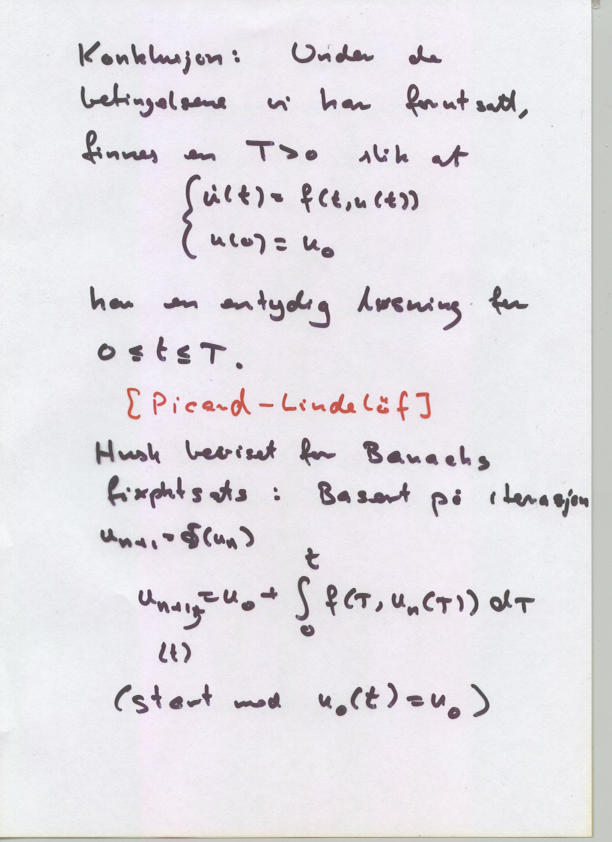 Konklusjon: Under de
betingelsene vi har forutsatt,
finnes en T>0 slik at
{ u̇(t) = f(t,u(t))
u(0) = u₀
har en entydig løsning for
0 ≤ t ≤ T.
[Picard-Lindelöf]
Husk beviset for Banachs
fixpktsats: Basert på iterasjon
uₙ₊₁ = Φ(uₙ)
uₙ₊₁(t) = u₀ + ∫₀ᵗ f(τ, uₙ(τ)) dτ
(start med u₀(t) = u₀)